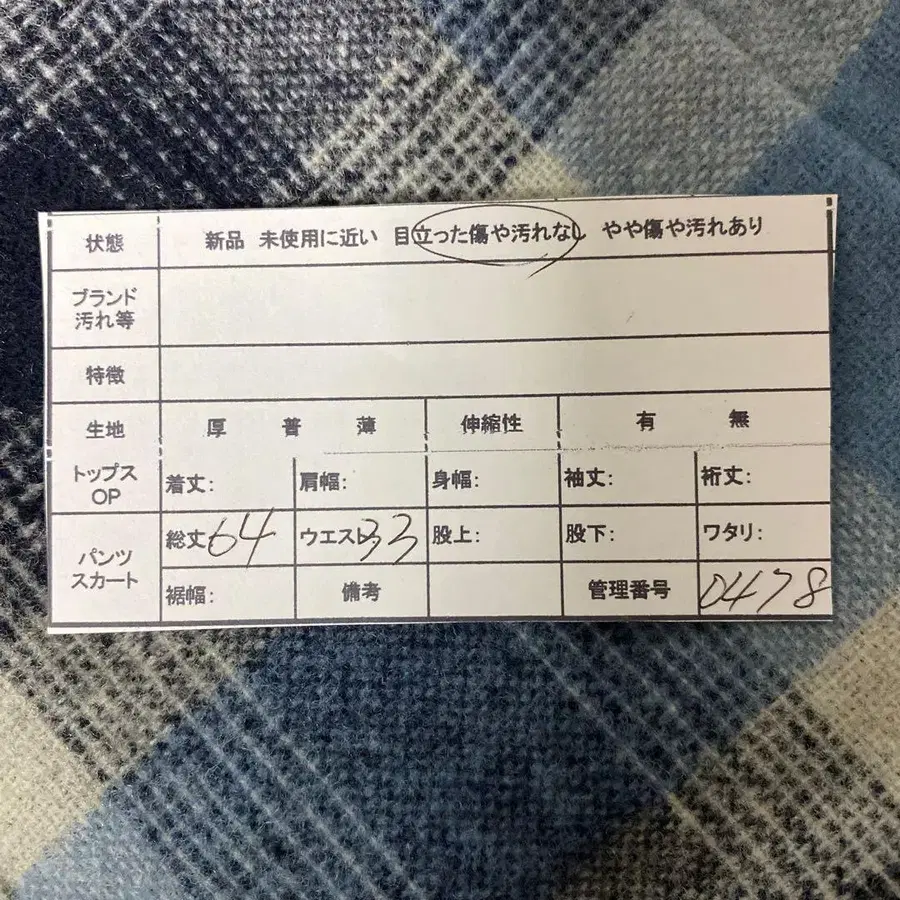 状態 新品 未使用に近い 目立った傷や汚れなし やや傷や汚れあり
ブランド
汚れ等
特徴
生地 厚 普 薄 伸縮性 有 無
トップス
OP
着丈: 肩幅: 身幅: 袖丈: 裄丈:
パンツ
スカート
総丈64 ウエスト33 股上: 股下: ワタリ:
裾幅: 備考 管理番号 0478